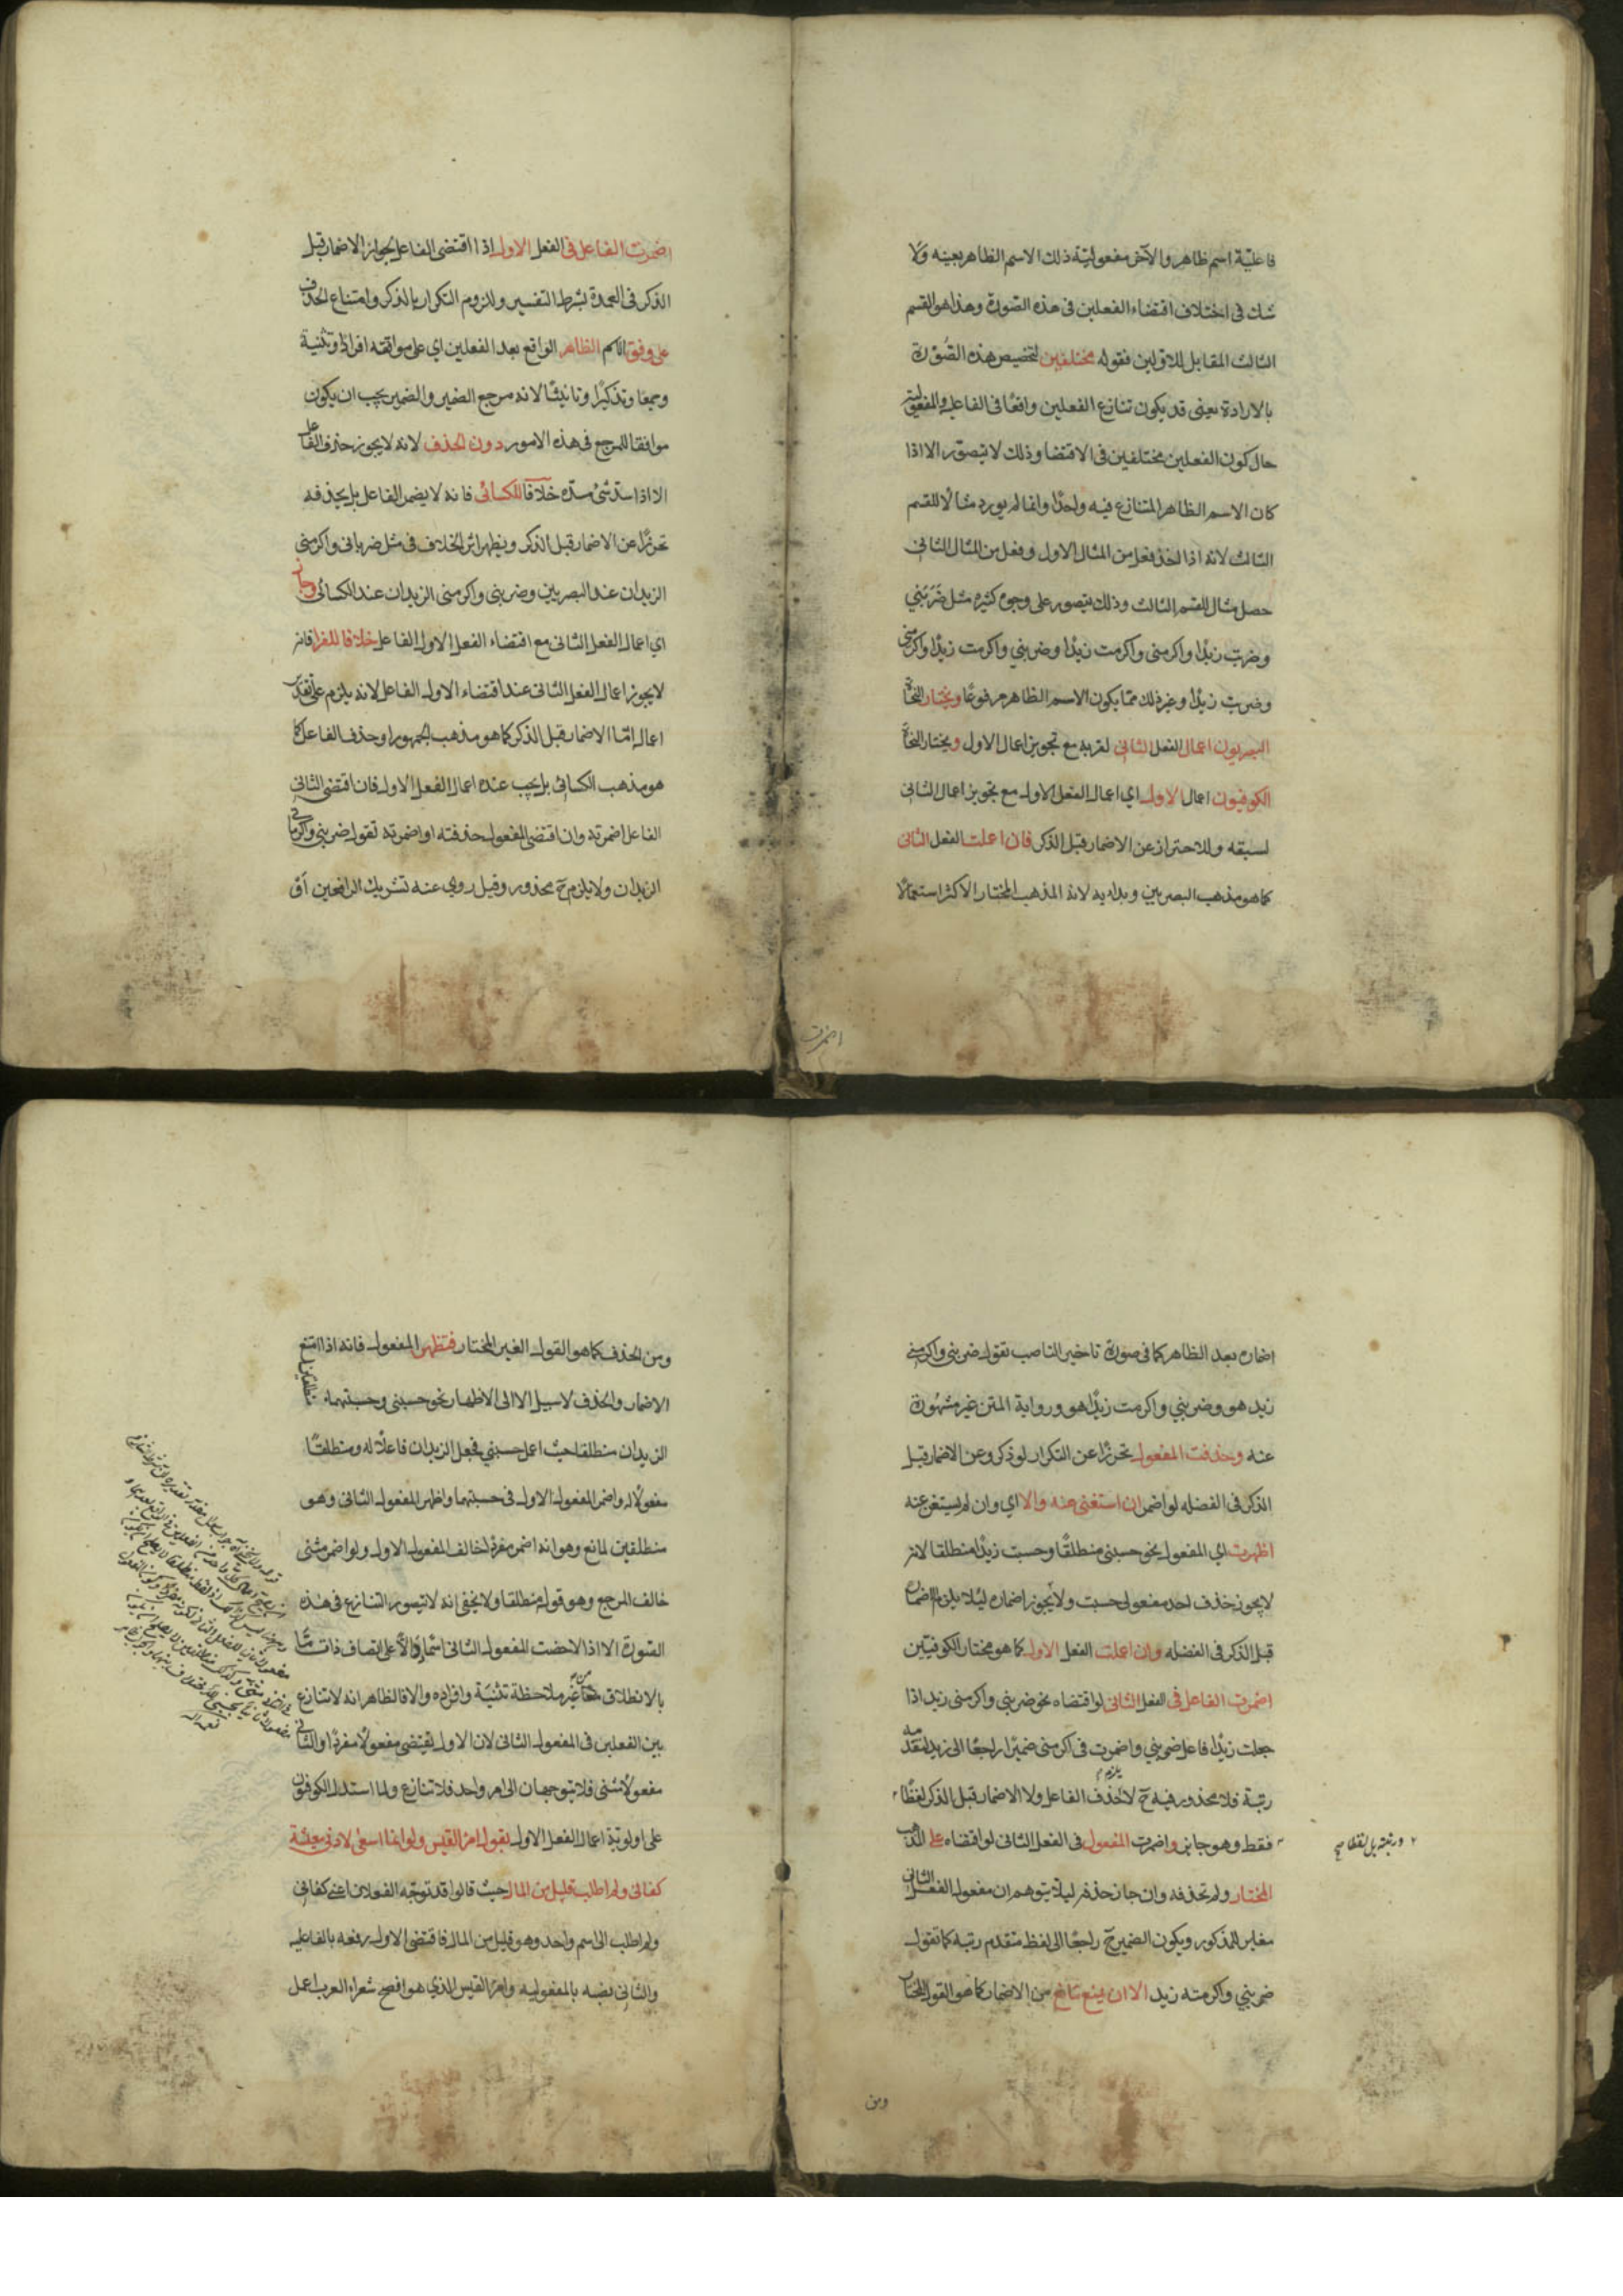 فاعلية اسم ظاهر والآخر مفعولية ذلك الاسم الظاهر بعينه ولا
شك فى اختلاف اقتضاء الفعلين فى هذه الصورة وهذا هو القسم
الثالث المقابل للاولين فقوله مختلفين لتخصيص هذه الصُّوْرة
بالارادة يعنى قد يكون تنازع الفعلين واقعًا فى الفاعلية والمفعولية
حال كون الفعلين مختلفين فى الاقتضا وذلك لا يتصوّر الا اذا
كان الاسم الظاهر المتنازع فيه واحدًا وانما لم يورد مثالًا للقسم
الثالث لانه اذا اخذ فعل من المثال الاول وفعل من المثال الثانى
حصل مثال للقسم الثالث وذلك يتصور على وجوه كثيره مثل ضَرَبَنِي
وضربت زيدًا واكرمنى واكرمت زيدًا وضربني واكرمت زيدًا واكرمنى
وضربت زيدًا وغير ذلك ممّا يكون الاسم الظاهر مرفوعًا ويختار النحاة
البصريون اعمال الفعل الثانى لقربه مع تجويز اعمال الاول ويختار النحاة
الكوفيون اعمال الاول اي اعمال الفعل الاول مع تجويز اعمال الثانى
لسبقه وللاحتراز عن الاضمار قبل الذكر فان اعملت الفعل الثانى
كما هو مذهب البصريين وبدأ به لانه المذهب المختار الاكثر استعمالًا
اضمرت
اضمرت الفاعل فى الفعل الاول اذا اقتضى الفاعل لجواز الاضمار قبل
الذكر فى العمدة بشرط التفسير وللزوم التكرار بالذكر وامتناع الحذف
على وفق الاسم الظاهر الواقع بعد الفعلين اي على موافقته افرادًا وتثنية
وجمعًا وتذكيرًا وتانيثًا لانه مرجع الضمير والضمير يجب ان يكون
موافقا للمرجع فى هذه الامور دون الحذف لانه لا يجوز حذف الفاعل
الا اذا سدّ شئ مسدّه خلافًا للكسائى فانه لا يضمر الفاعل بل يحذفه
تحرزًا عن الاضمار قبل الذكر ويظهر اثر الخلاف فى مثل ضربانى واكرمنى
الزيدان عند البصريين وضربنى واكرمنى الزيدان عند الكسائى وجاز
اي اعمال الفعل الثانى مع اقتضاء الفعل الاول الفاعل خلافا للفراء فانه
لا يجوز اعمال الفعل الثانى عند اقتضاء الاول الفاعل لانه يلزم على تقدير
اعماله امّا الاضمار قبل الذكر كما هو مذهب الجمهور او حذف الفاعل كما
هو مذهب الكسائى بل يجب عنده اعمال الفعل الاول فان اقتضى الثانى
الفاعل اضمرته وان اقتضى المفعول حذفته او اضمرته تقول ضربنى واكرمانى
الزيدان ولا يلزم ح محذور وقيل روى عنه تشريك الرافعين اَوْ
اضماره بعد الظاهر كما فى صورة تاخير الناصب تقول ضربنى واكرمنى
زيد هو وضربني واكرمت زيدًا هو ورواية المتن غير مشهورة
عنه وحذفت المفعول تحرزًا عن التكرار لو ذكر وعن الاضمار قبل
الذكر فى الفضله لو اضمر ان استغنى عنه والا اي وان لم يستغن عنه
اظهرت اي المفعول نحو حسبنى منطلقًا وحسبت زيدًا منطلقا لانه
لا يجوز حذف احد مفعولى حسبت ولا يجوز اضماره لئلا يلزم الاضمار
قبل الذكر فى الفضله وان اعملت الفعل الاول كما هو مختار الكوفيين
اضمرت الفاعل فى الفعل الثانى لو اقتضاه نحو ضربنى واكرمنى زيد اذا
جعلت زيدًا فاعل ضربني واضمرت فى اكرمنى ضميرًا راجعًا الى زيد لتقدمه
رتبة فلا محذور فيه ح لا حذف الفاعل ولا الاضمار قبل الذكر لفظًا
فقط وهو جائز واضمرت المفعول فى الفعل الثانى لو اقتضاه على المذهب
ورتبة بل لفظا صح
المختار ولم تحذفه وان جاز حذفه ليلا يتوهم ان مفعول الفعل الثانى
مغاير للمذكور ويكون الضمير ح راجعًا الى لفظ متقدم رتبة كما تقول
ضربني واكرمته زيد الا ان يمنع مَانع من الاضمار كما هو القول المختار
ومن
ومن الحذف كما هو القول الغير المختار فتظهر المفعول فانه اذا امتنع
الاضمار والحذف لا سبيل الا الى الاظهار نحو حسبنى وحسبتهما منطلقين
الزيدان منطلقا حيث اعمل حسبني فجعل الزيدان فاعلًا له ومنطلقًا
مفعولًا له واضمر المفعول الاول فى حسبتهما واظهر المفعول الثانى وهو
منطلقين لمانع وهو انه اضمر مفردًا خالف المفعول الاول ولو اضمر مثنى
خالف المرجع وهو قوله منطلقا ولا يخفى انه لا يتصور التنازع فى هذه
الصورة الا اذا لاحظت المفعول الثانى اسْمًا دالًّا على اتصاف ذات مّا
بالانطلاق من غير ملاحظة تثنيَة وافراده والا فالظاهر انه لا تنازع
بين الفعلين فى المفعول الثانى لان الاول يقتضى مفعولًا مفردًا والثانى
مفعولًا مثنى فلا يتوجهان الى امر واحد فلا تنازع ولما استدل الكوفيون
على اولوية اعمال الفعل الاول بقول امرء القيس ولو انما اسعى لادنى معيشة
كفانى ولم اطلب قليل من المال حيث قالوا قد توجّه الفعلان اعنى كفانى
ولم اطلب الى اسم واحد وهو قليل من المال فاقتضى الاول رفعه بالفاعليه
والثانى نصبه بالمفعوليه وامرء القيس الذي هو افصح شعراء العرب اعمل